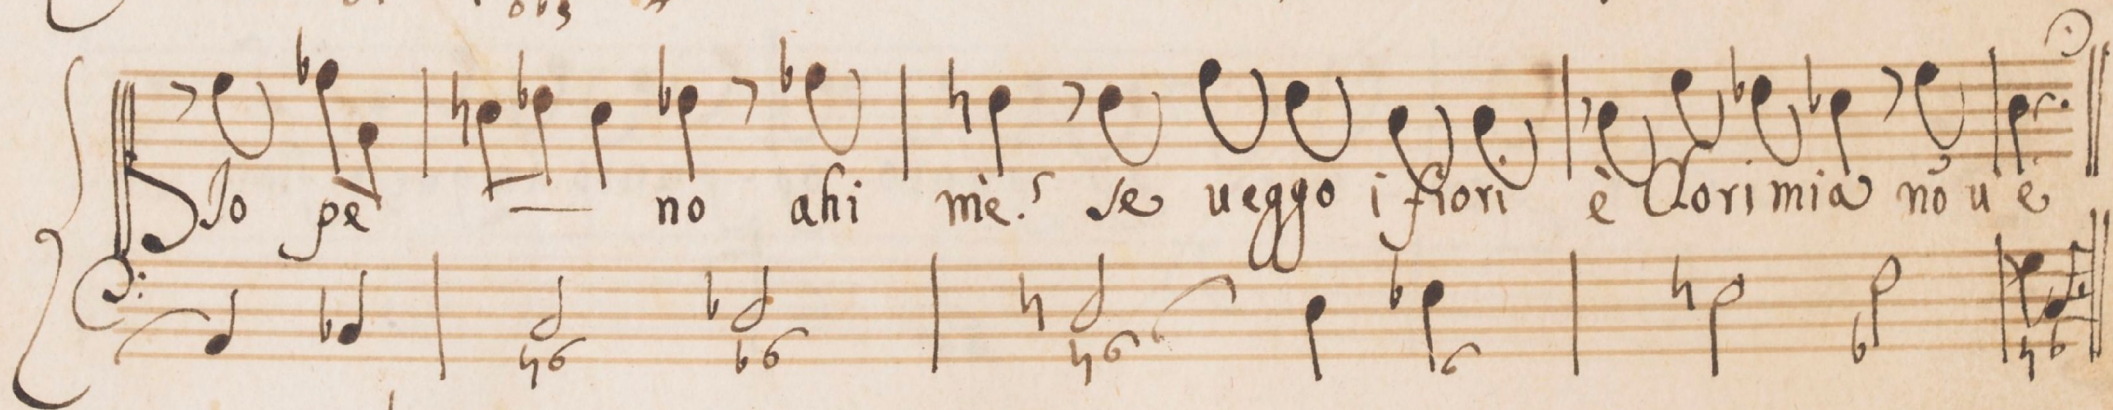 So pe no ahi mè? se ueggo i fiori è Clori mia nō u è
♮6 ♭6 ♮6 6 6 ♭ ♮6